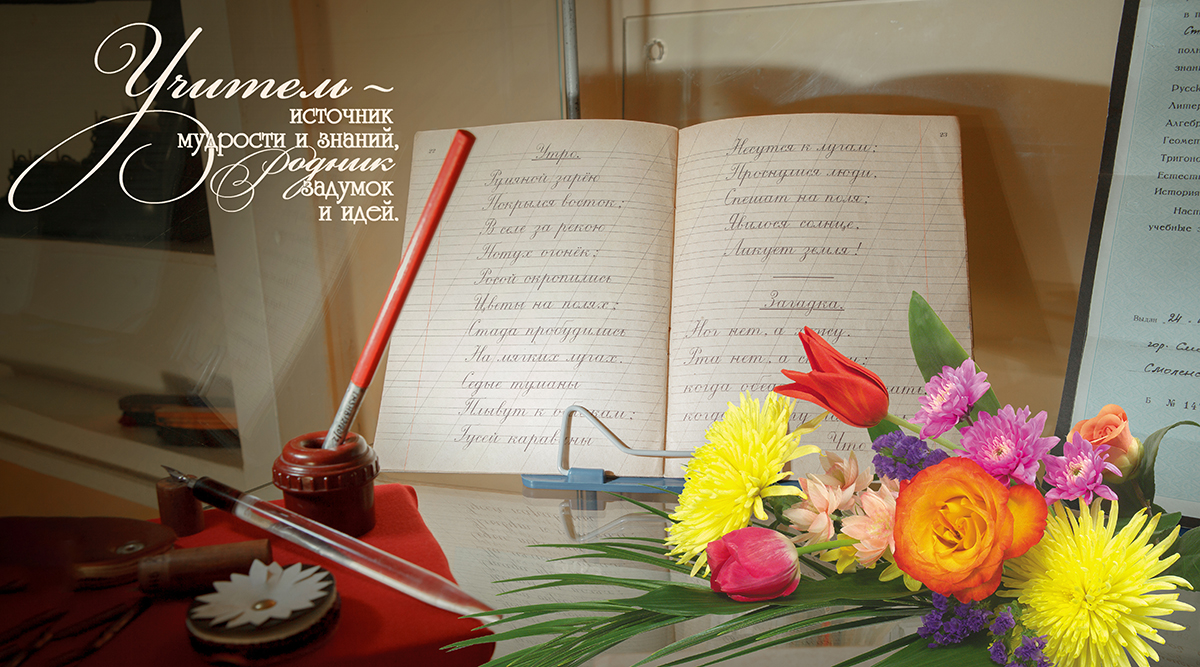 Учитель ~
источник
мудрости и знаний,
Родник
задумок
и идей.
22
Утро.
Румяной зарёю
Покрылся восток;
В селе за рекою
Потух огонёк;
Росой окропились
Цветы на полях;
Стада пробудились
На мягких лугах.
Седые туманы
Плывут к облакам;
Гусей караваны
23
Несутся к лугам;
Проснулися люди.
Спешат на поля;
Явилося солнце.
Ликует земля!
Загадка.
Ног нет, а
Рта нет, а
когда
когда
Что
полн
знани
Русск
Литер
Алгебр
Геомет
Тригоно
Естеств
История
Насп
учебные з
Выдан 24
гор. Смо
Смоленс
Б № 14